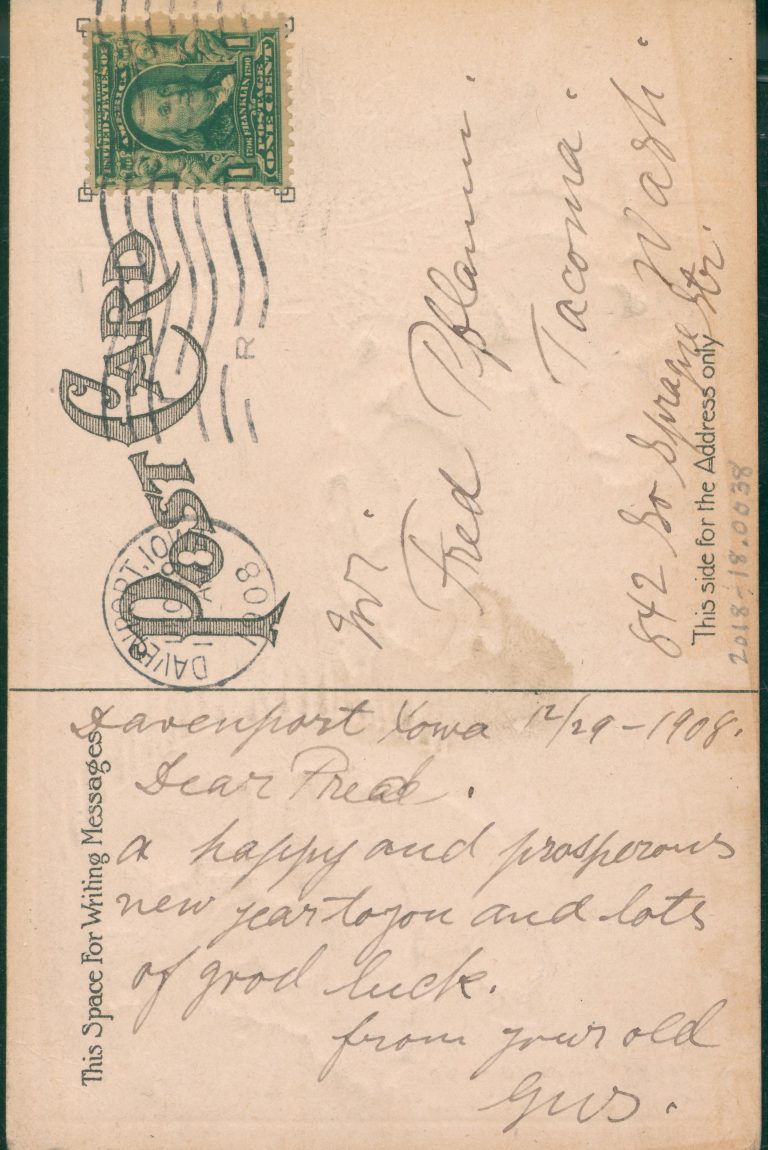 POST CARD
SERIES 1902
UNITED STATES OF AMERICA
1706 FRANKLIN 1790
POSTAGE
1 ONE CENT 1
DAVENPORT, IOWA
1908
R
Mr.
Fred Pflaum.
Tacoma.
Wash.
842 So Sprague Str.
This side for the Address only
2018-18.0038
This Space For Writing Messages
Davenport Iowa 12/29-1908.
Dear Fred.
a happy and prosperous
new year to you and lots
of good luck.
from your old
Gus.